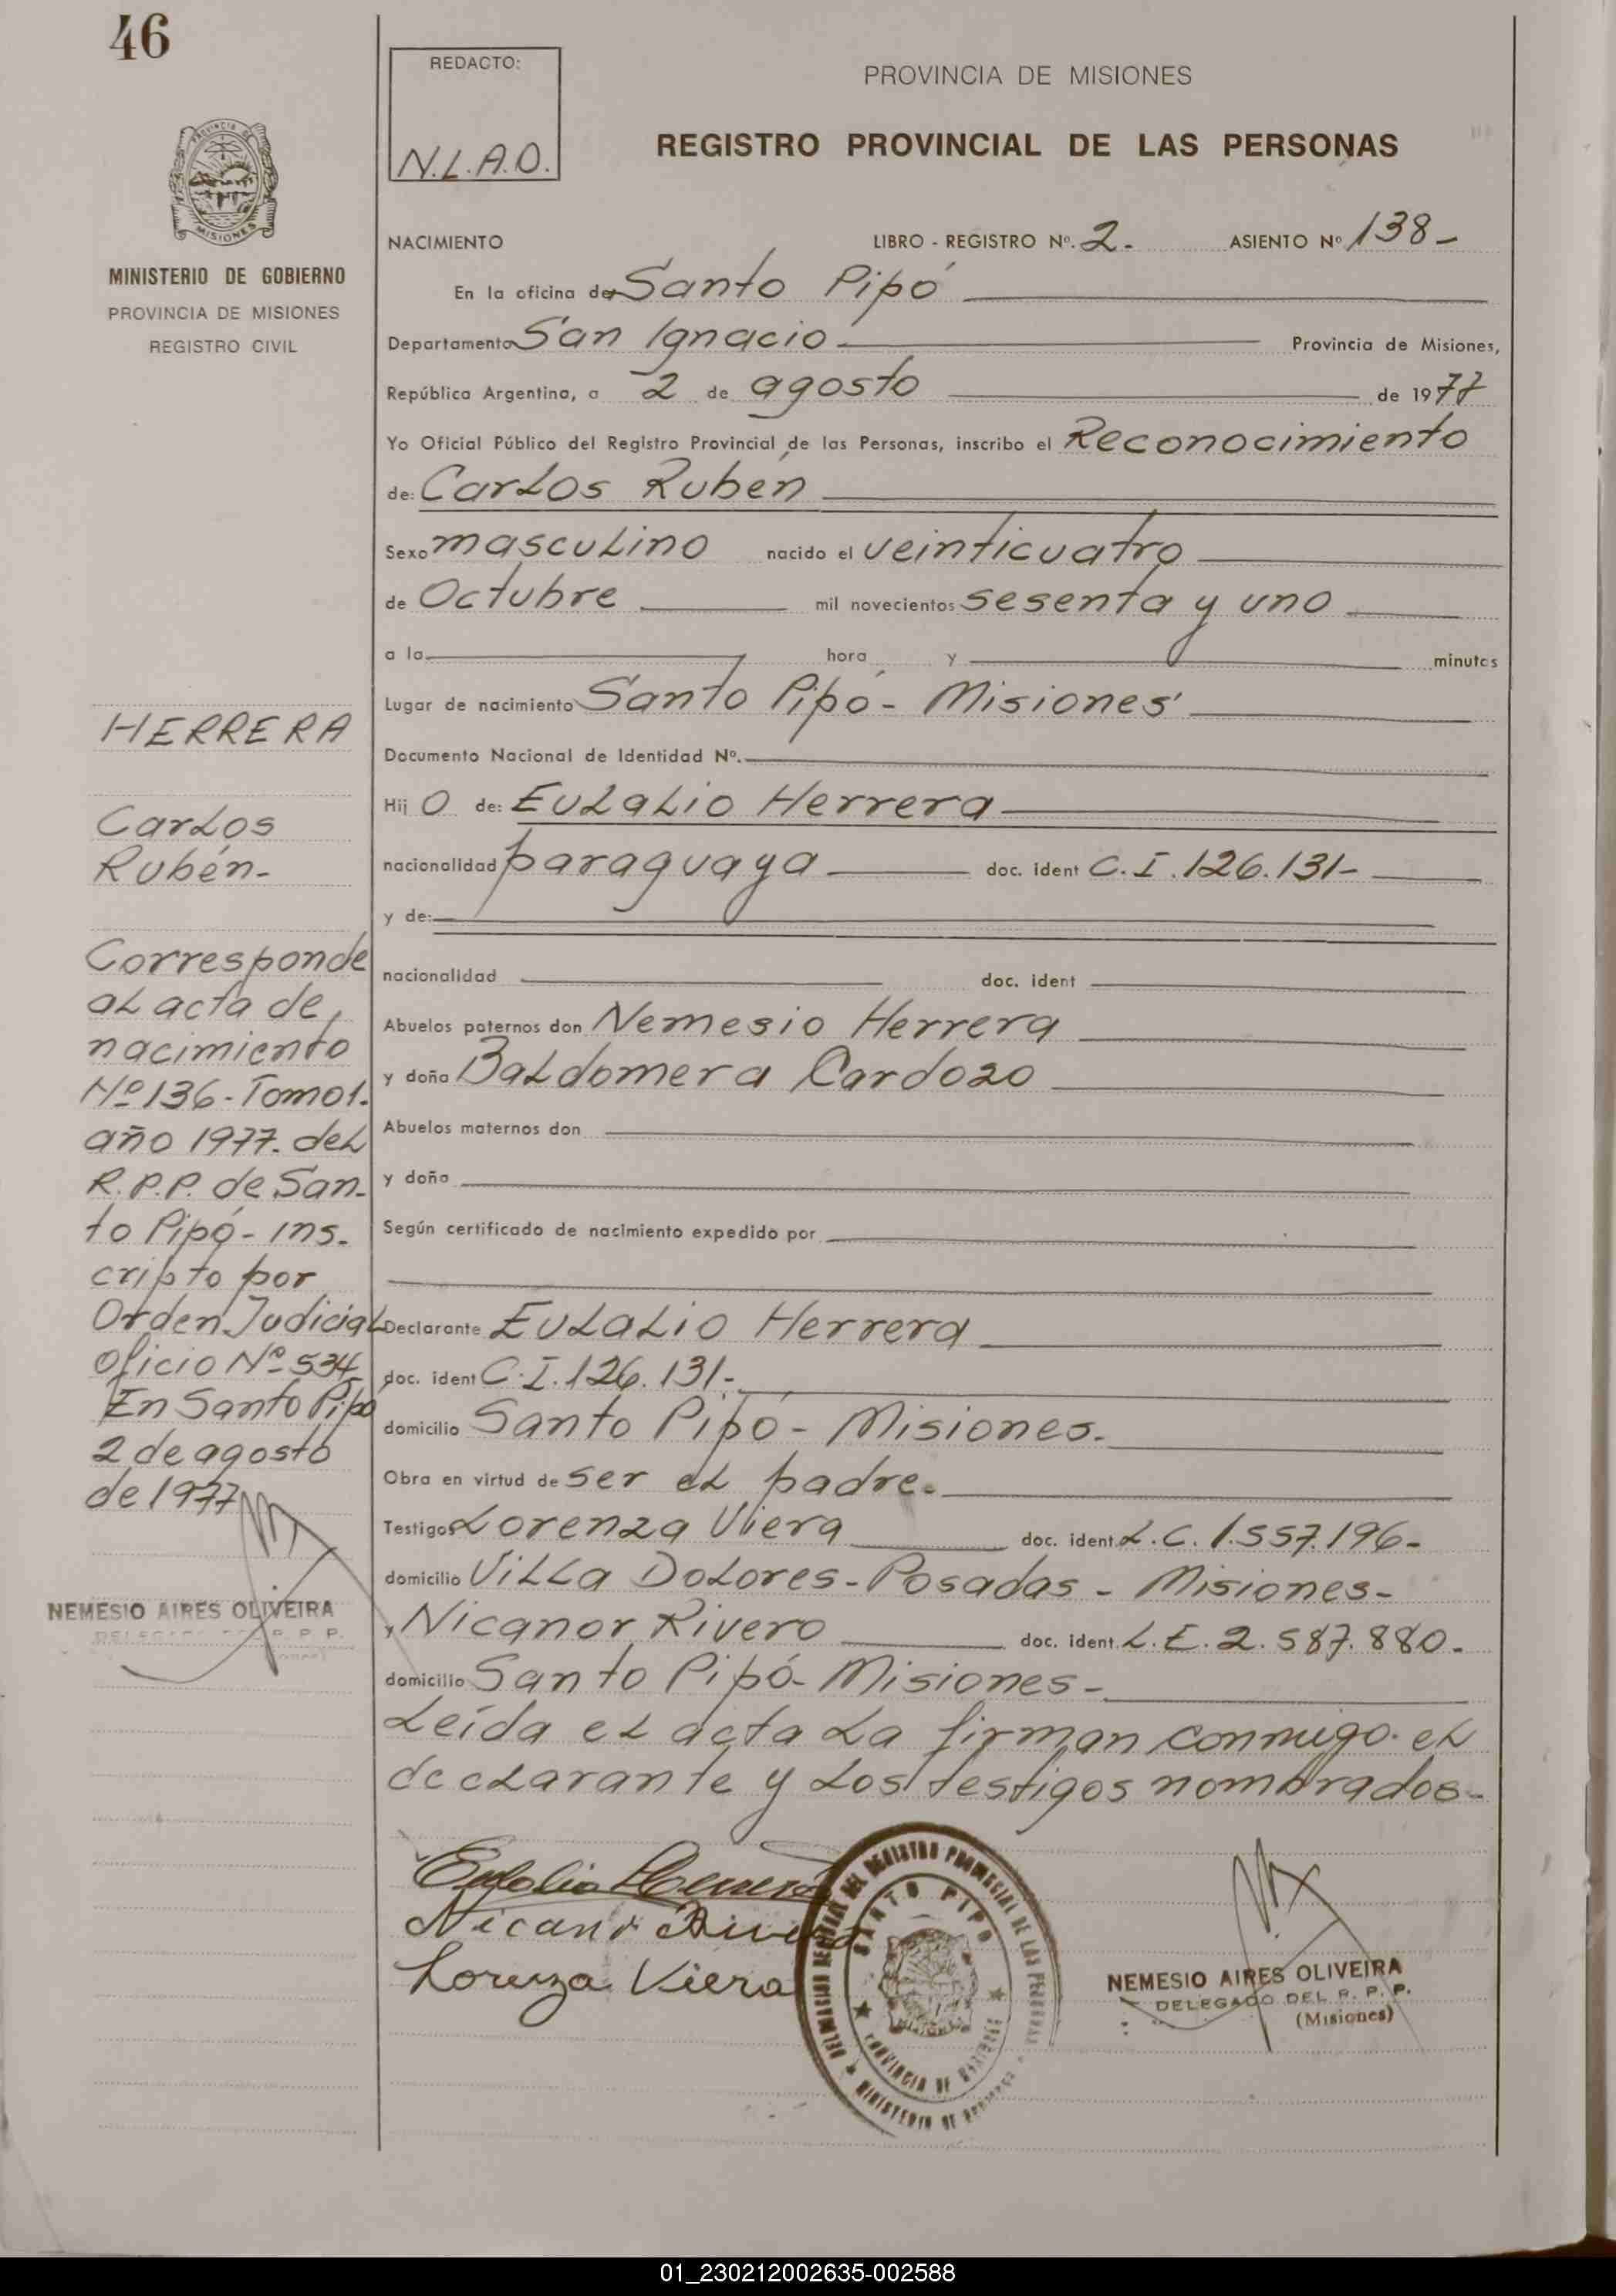 46
REDACTO:
N.L.A.O.
PROVINCIA DE MISIONES
REGISTRO PROVINCIAL DE LAS PERSONAS
PROVINCIA DE
MISIONES
MINISTERIO DE GOBIERNO
PROVINCIA DE MISIONES
REGISTRO CIVIL
HERRERA
Carlos
Rubén-
Corresponde
al acta de
nacimiento
Nº 136-Tomo1.
año 1977. del
R.P.P. de San-
to Pipó-ins-
cripto por
Orden Judicial
Oficio Nº 534
En Santo Pipó
2 de agosto
de 1977
NEMESIO AIRES OLIVEIRA
NACIMIENTO LIBRO - REGISTRO Nº. 2- ASIENTO Nº 138-
En la oficina de Santo Pipó
Departamento San Ignacio Provincia de Misiones,
República Argentina, a 2 de agosto de 1977
Yo Oficial Público del Registro Provincial de las Personas, inscribo el Reconocimiento
de: Carlos Rubén
Sexo masculino nacido el veinticuatro
de Octubre mil novecientos sesenta y uno
a la hora y minutos
Lugar de nacimiento Santo Pipó- Misiones
Documento Nacional de Identidad Nº.
Hij o de: Eulalio Herrera
nacionalidad paraguaya doc. ident C.I.126.131-
y de:
nacionalidad doc. ident
Abuelos paternos don Nemesio Herrera
y doña Baldomera Cardozo
Abuelos maternos don
y doña
Según certificado de nacimiento expedido por
Declarante Eulalio Herrera
doc. ident C.I.126.131-
domicilio Santo Pipó- Misiones.
Obra en virtud de ser el padre.
Testigos Lorenza Viera doc. ident. L.C. 1.557.196-
domicilio Villa Dolores-Posadas - Misiones-
y Nicanor Rivero doc. ident. L.E. 2.587.880-
domicilio Santo Pipó- Misiones-
Leída el acta la firman conmigo el
declarante y los testigos nombrados-
Eulalio Herrera
Nicanor Rivero
Lorenza Viera
SANTO PIPO
PROVINCIA DE MISIONES
NEMESIO AIRES OLIVEIRA
DELEGADO DEL R. P. P.
(Misiones)
01_230212002635-002588